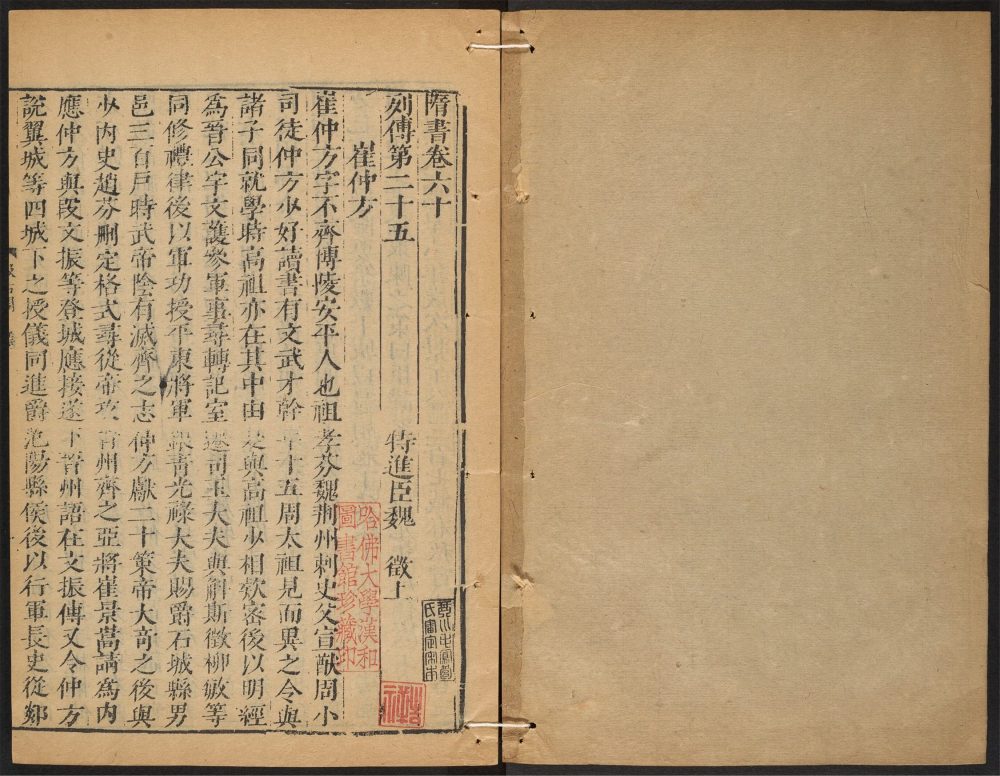 隋書卷六十
列傳第二十五　特進臣魏　徵上
崔仲方
崔仲方字不齊博陵安平人也祖孝芬魏荆州刺史父宣猷周小
司徒仲方少好讀書有文武才幹年十五周太祖見而異之令與
諸子同就學時高祖亦在其中由是與高祖少相欵密後以明經
爲晉公宇文護參軍事尋轉記室遷司玉大夫與斛斯徵柳敏等
同修禮律後以軍功授平東將軍銀青光祿大夫賜爵石城縣男
邑三百戸時武帝陰有滅齊之志仲方獻二十策帝大奇之後與
少内史趙芬刪定格式尋從帝攻晉州齊之亞將崔景嵩請爲内
應仲方與段文振等登城應接遂下晉州語在文振傳又令仲方
説翼城等四城下之授儀同進爵范陽縣侯後以行軍長史從郯
哈佛大學漢和
圖書館珍藏印